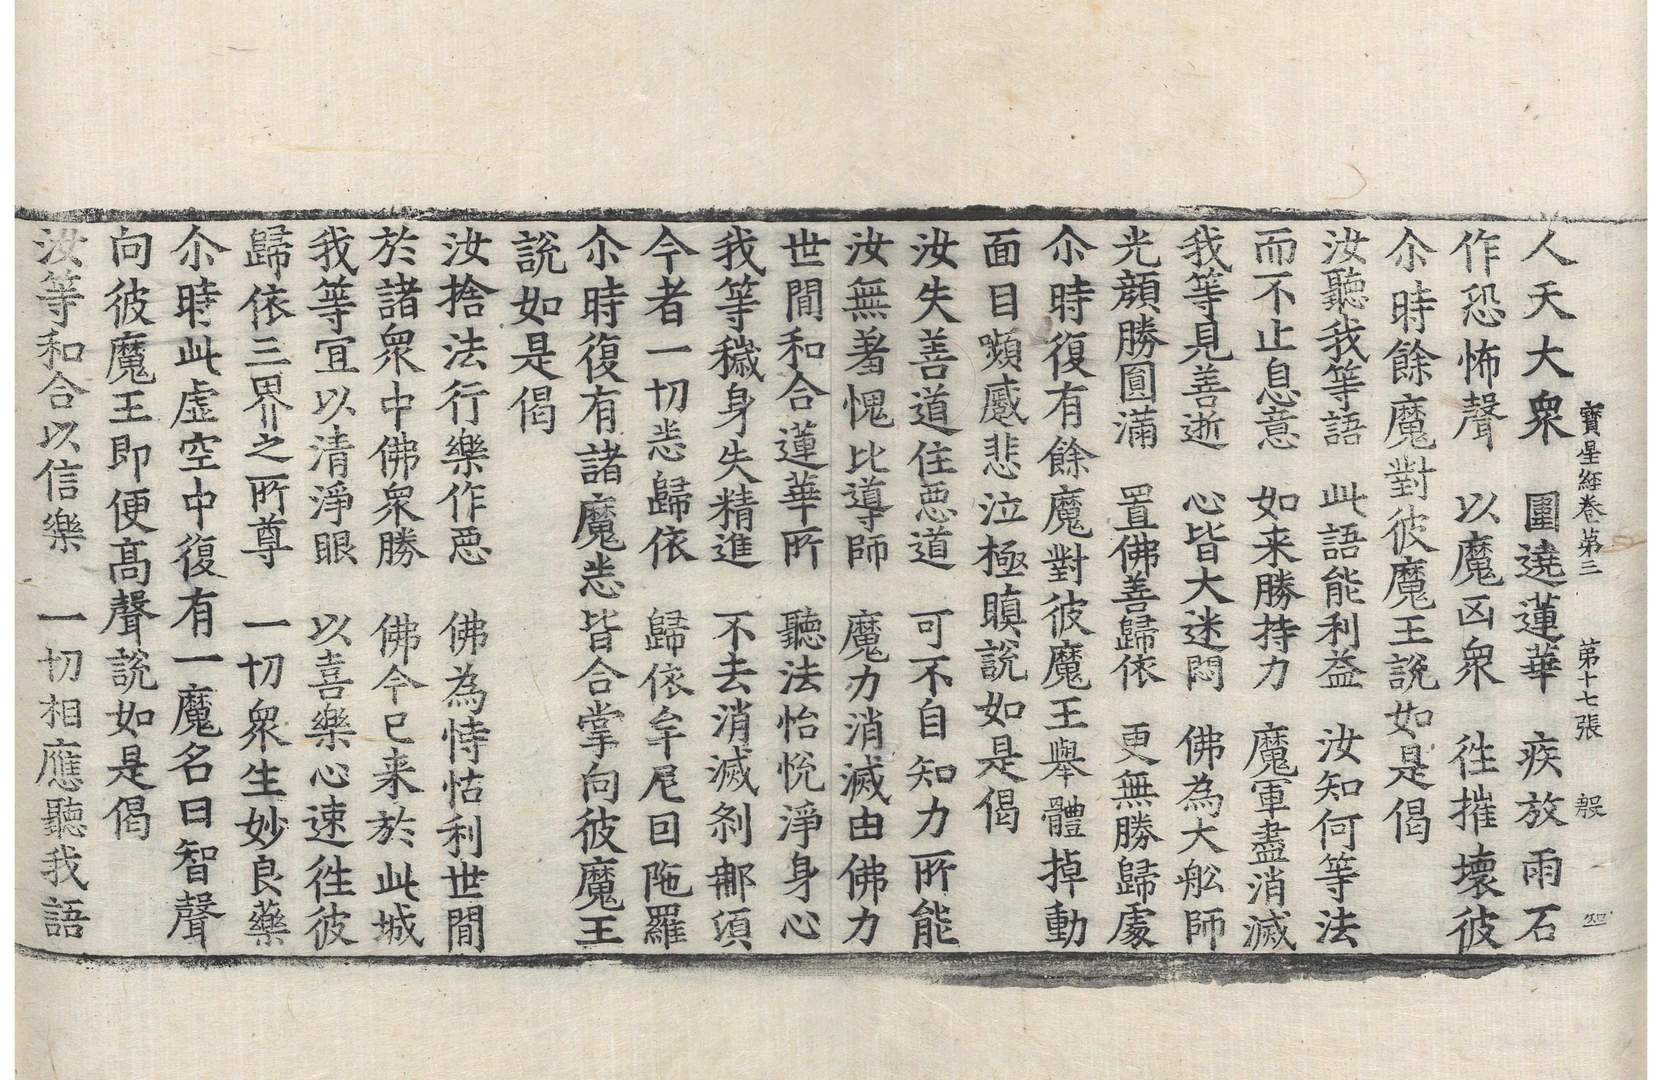 寶星經卷第三　第十七張　殷
人天大衆　圍遶蓮華　疾放雨石
作恐怖聲　以魔凶衆　徃摧壞彼
尒時餘魔對彼魔王說如是偈
汝聽我等語　此語能利益　汝知何等法
而不止息意　如来勝持力　魔軍盡消滅
我等見善逝　心皆大迷悶　佛為大舩師
光顔勝圓滿　置佛善歸依　更無勝歸處
尒時復有餘魔對彼魔王舉體掉動
面目嚬蹙悲泣極瞋說如是偈
汝失善道住惡道　可不自知力所能
汝無羞愧比導師　魔力消滅由佛力
世間和合蓮華所　聽法怡悅淨身心
我等穢身失精進　不去消滅刹那須
今者一切悉歸依　歸依牟尼回陁羅
尒時復有諸魔悉皆合掌向彼魔王
說如是偈
汝捨法行樂作惡　佛為恃怙利世間
於諸衆中佛衆勝　佛今已来於此城
我等宜以清淨眼　以喜樂心速徃彼
歸依三界之所尊　一切衆生妙良藥
尒時此虛空中復有一魔名曰智聲
向彼魔王即便高聲說如是偈
汝等和合以信樂　一切相應聽我語